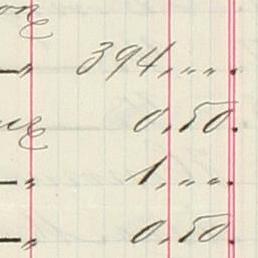 — " 394,"".
0.50.
— " 1,"".
— " 0.50.